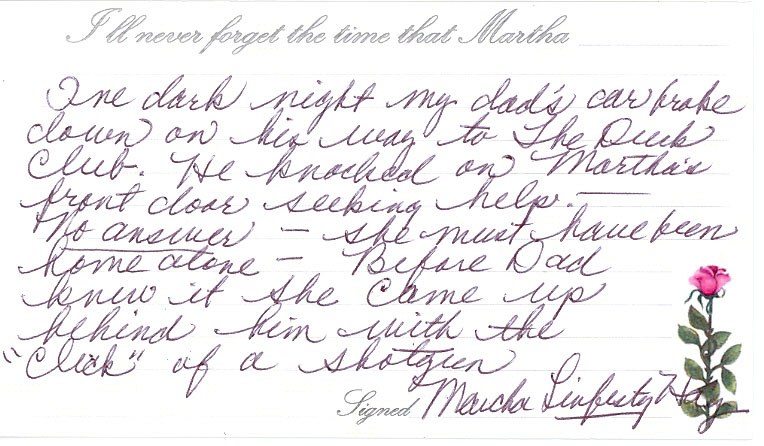 I'll never forget the time that Martha
One dark night my dad's car broke
down on his way to The Duck
Club. He knocked on Martha's
front door seeking help. —
No answer — she must have been
home alone — Before Dad
knew it she came up
behind him with the
"click" of a shotgun
Signed Marcha Linfesty Hay